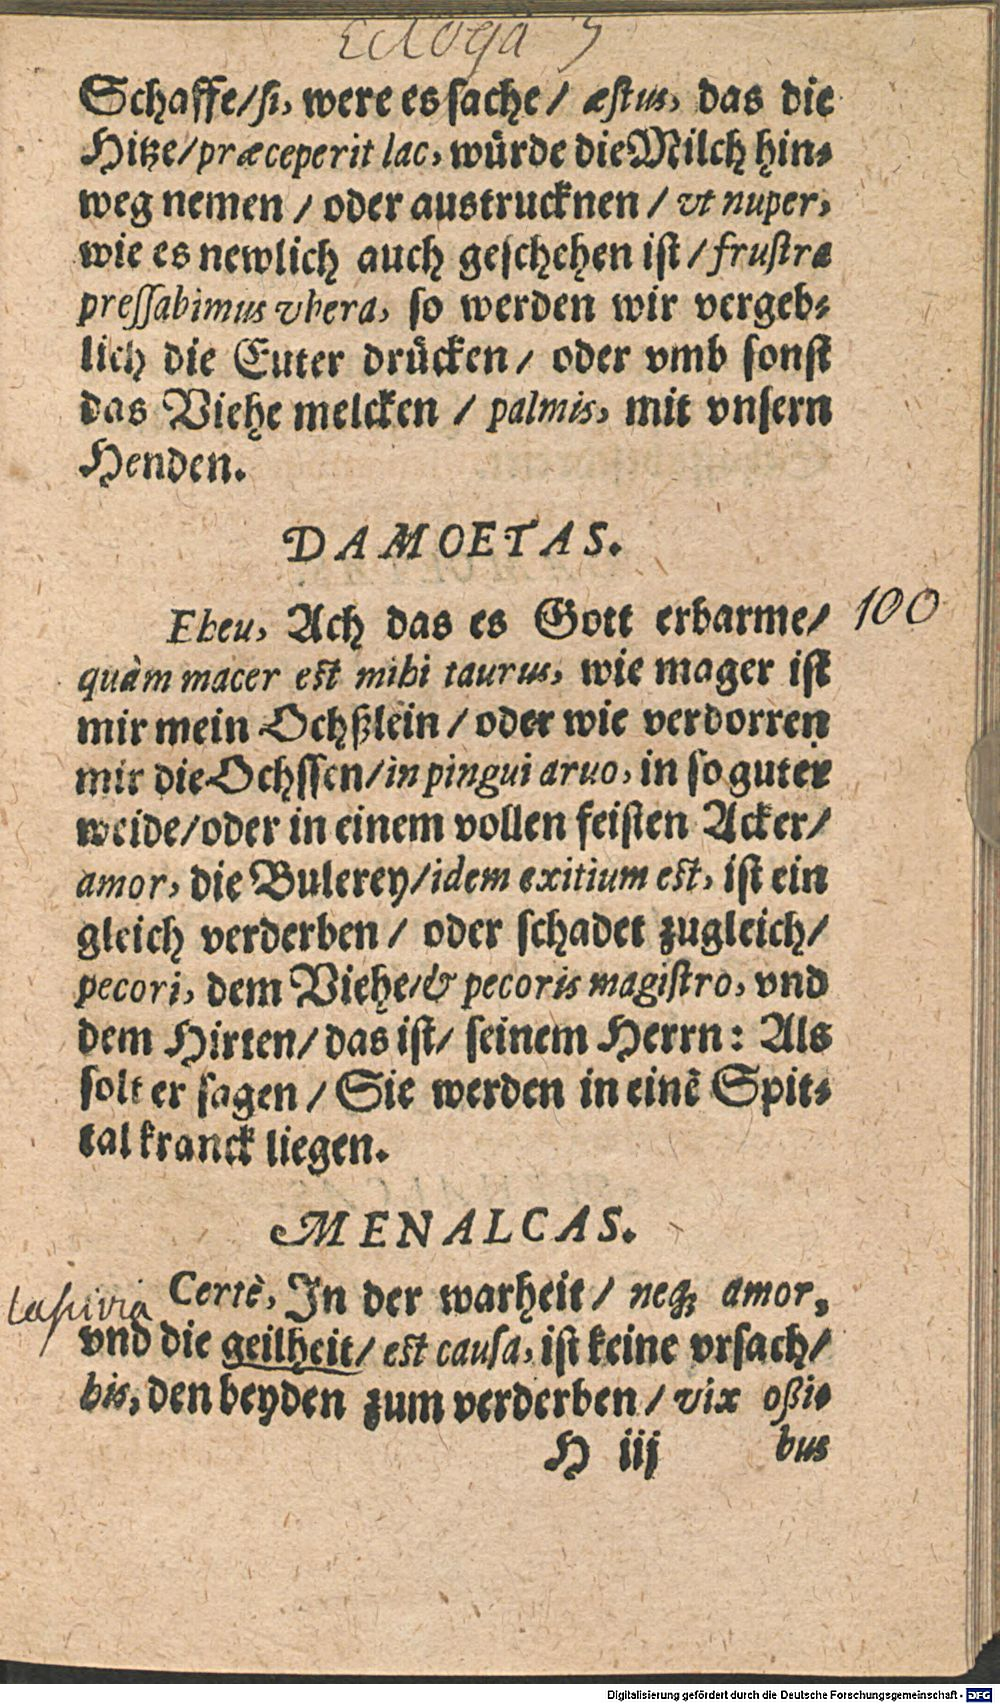 Ecloga 3
Schaffe/ si, were es sache/ æstus, das die
Hitze/ præceperit lac, würde die Milch hin-
weg nemen / oder austrucknen / vt nuper,
wie es newlich auch geschehen ist / frustra
pressabimus vbera, so werden wir vergeb-
lich die Euter drücken / oder vmb sonst
das Viehe melcken / palmis, mit vnsern
Henden.
DAMOETAS.
Eheu, Ach das es Gott erbarme/ 100
quàm macer est mihi taurus, wie mager ist
mir mein Ochßlein / oder wie verdorren
mir die Ochssen/ in pingui aruo, in so guter
weide/ oder in einem vollen feisten Acker/
amor, die Bulerey/ idem exitium est, ist ein
gleich verderben / oder schadet zugleich/
pecori, dem Viehe/ & pecoris magistro, vnd
dem Hirten/ das ist/ seinem Herrn: Als
solt er sagen / Sie werden in einē Spit-
tal kranck liegen.
MENALCAS.
Certè, In der warheit / neq; amor,
lasivia
vnd die geilheit/ est causa, ist keine vrsach/
his, den beyden zum verderben / vix oßi-
H iij bus
Digitalisierung gefördert durch die Deutsche Forschungsgemeinschaft - DFG